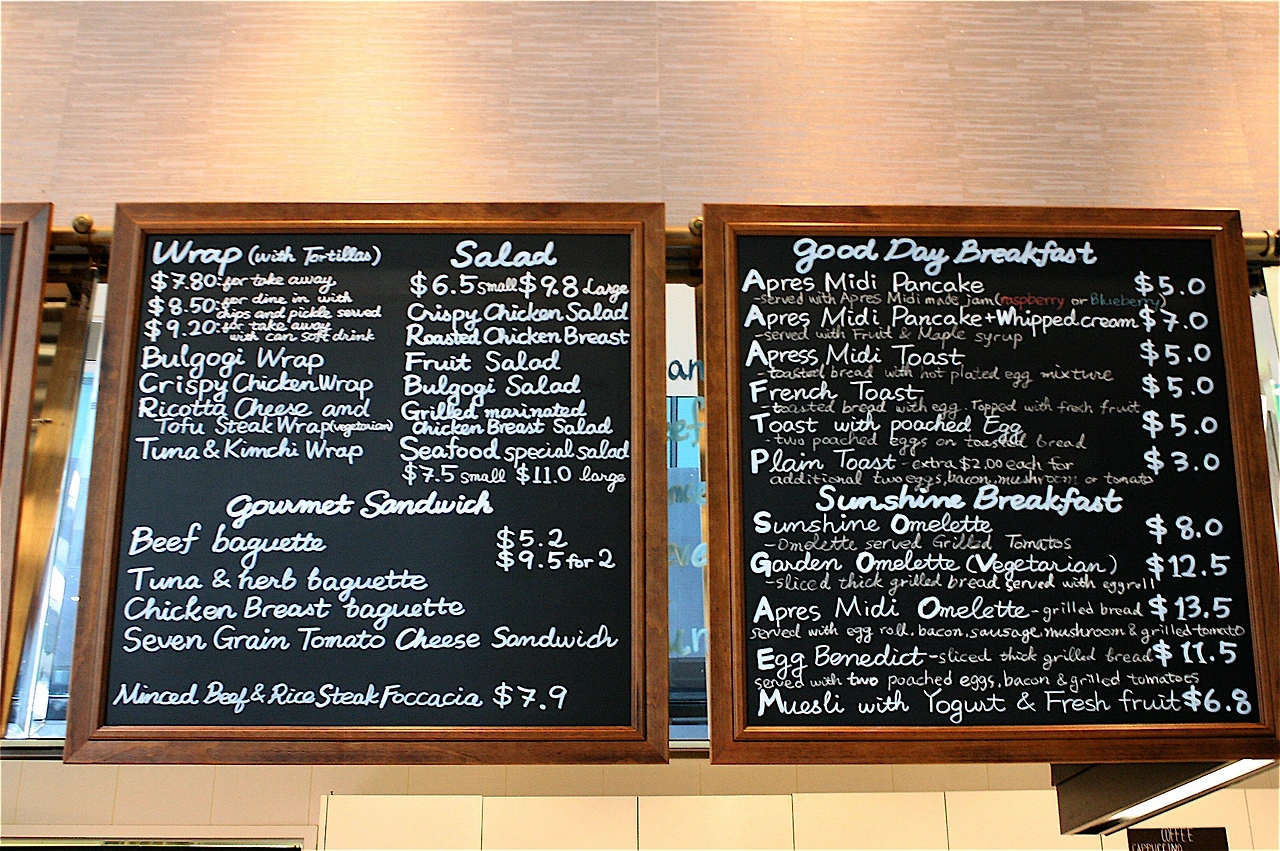 Wrap (with Tortillas)
$7.80:for take away
$8.50:for dine in with
chips and pickle served
$9.20:for take away
with can soft drink
Bulgogi Wrap
Crispy Chicken Wrap
Ricotta Cheese and
Tofu Steak Wrap(vegetarian)
Tuna & Kimchi Wrap
Salad
$6.5 small $9.8 Large
Crispy Chicken Salad
Roasted Chicken Breast
Fruit Salad
Bulgogi Salad
Grilled marinated
Chicken Breast Salad
Seafood special salad
$7.5 small $11.0 large
Gourmet Sandwich
Beef baguette $5.2
$9.5 for 2
Tuna & herb baguette
Chicken Breast baguette
Seven Grain Tomato Cheese Sandwich
Minced Beef & Rice Steak Foccacia $7.9
an
Good Day Breakfast
Apres Midi Pancake $5.0
-served with Apres Midi made jam(raspberry or Blueberry)
Apres Midi Pancake+Whipped cream $7.0
-served with Fruit & Maple syrup
Apress Midi Toast $5.0
-toasted bread with hot plated egg mixture
French Toast $5.0
-toasted bread with egg. Topped with fresh fruit
Toast with poached Egg $5.0
-two poached eggs on toasted bread
Plain Toast -extra $2.00 each for $3.0
additional two eggs, bacon, mushroom or tomato
Sunshine Breakfast
Sunshine Omelette $8.0
-Omelette served Grilled Tomatos
Garden Omelette (Vegetarian) $12.5
-sliced thick grilled bread served with eggroll
Apres Midi Omelette-grilled bread $13.5
served with egg roll, bacon, sausage, mushroom & grilled tomato
Egg Benedict-sliced thick grilled bread $11.5
served with two poached eggs, bacon & grilled tomatoes
Muesli with Yogurt & Fresh fruit $6.8
COFFEE
CAPPUCCINO